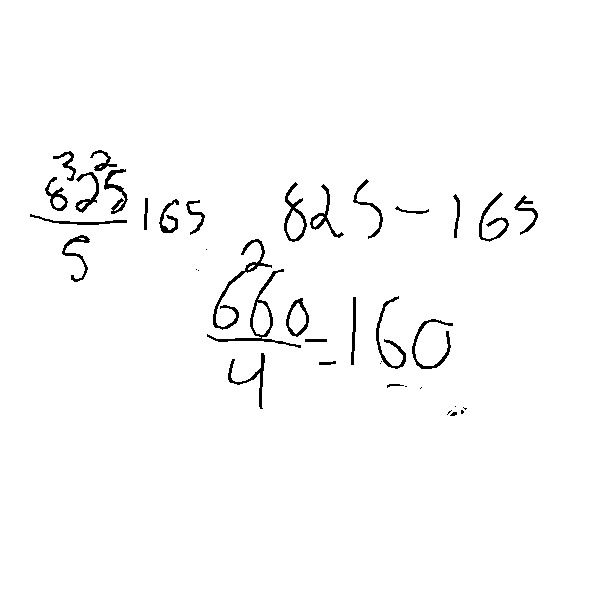 8³2²5/5 165
825 - 165
6²60/4 = 160